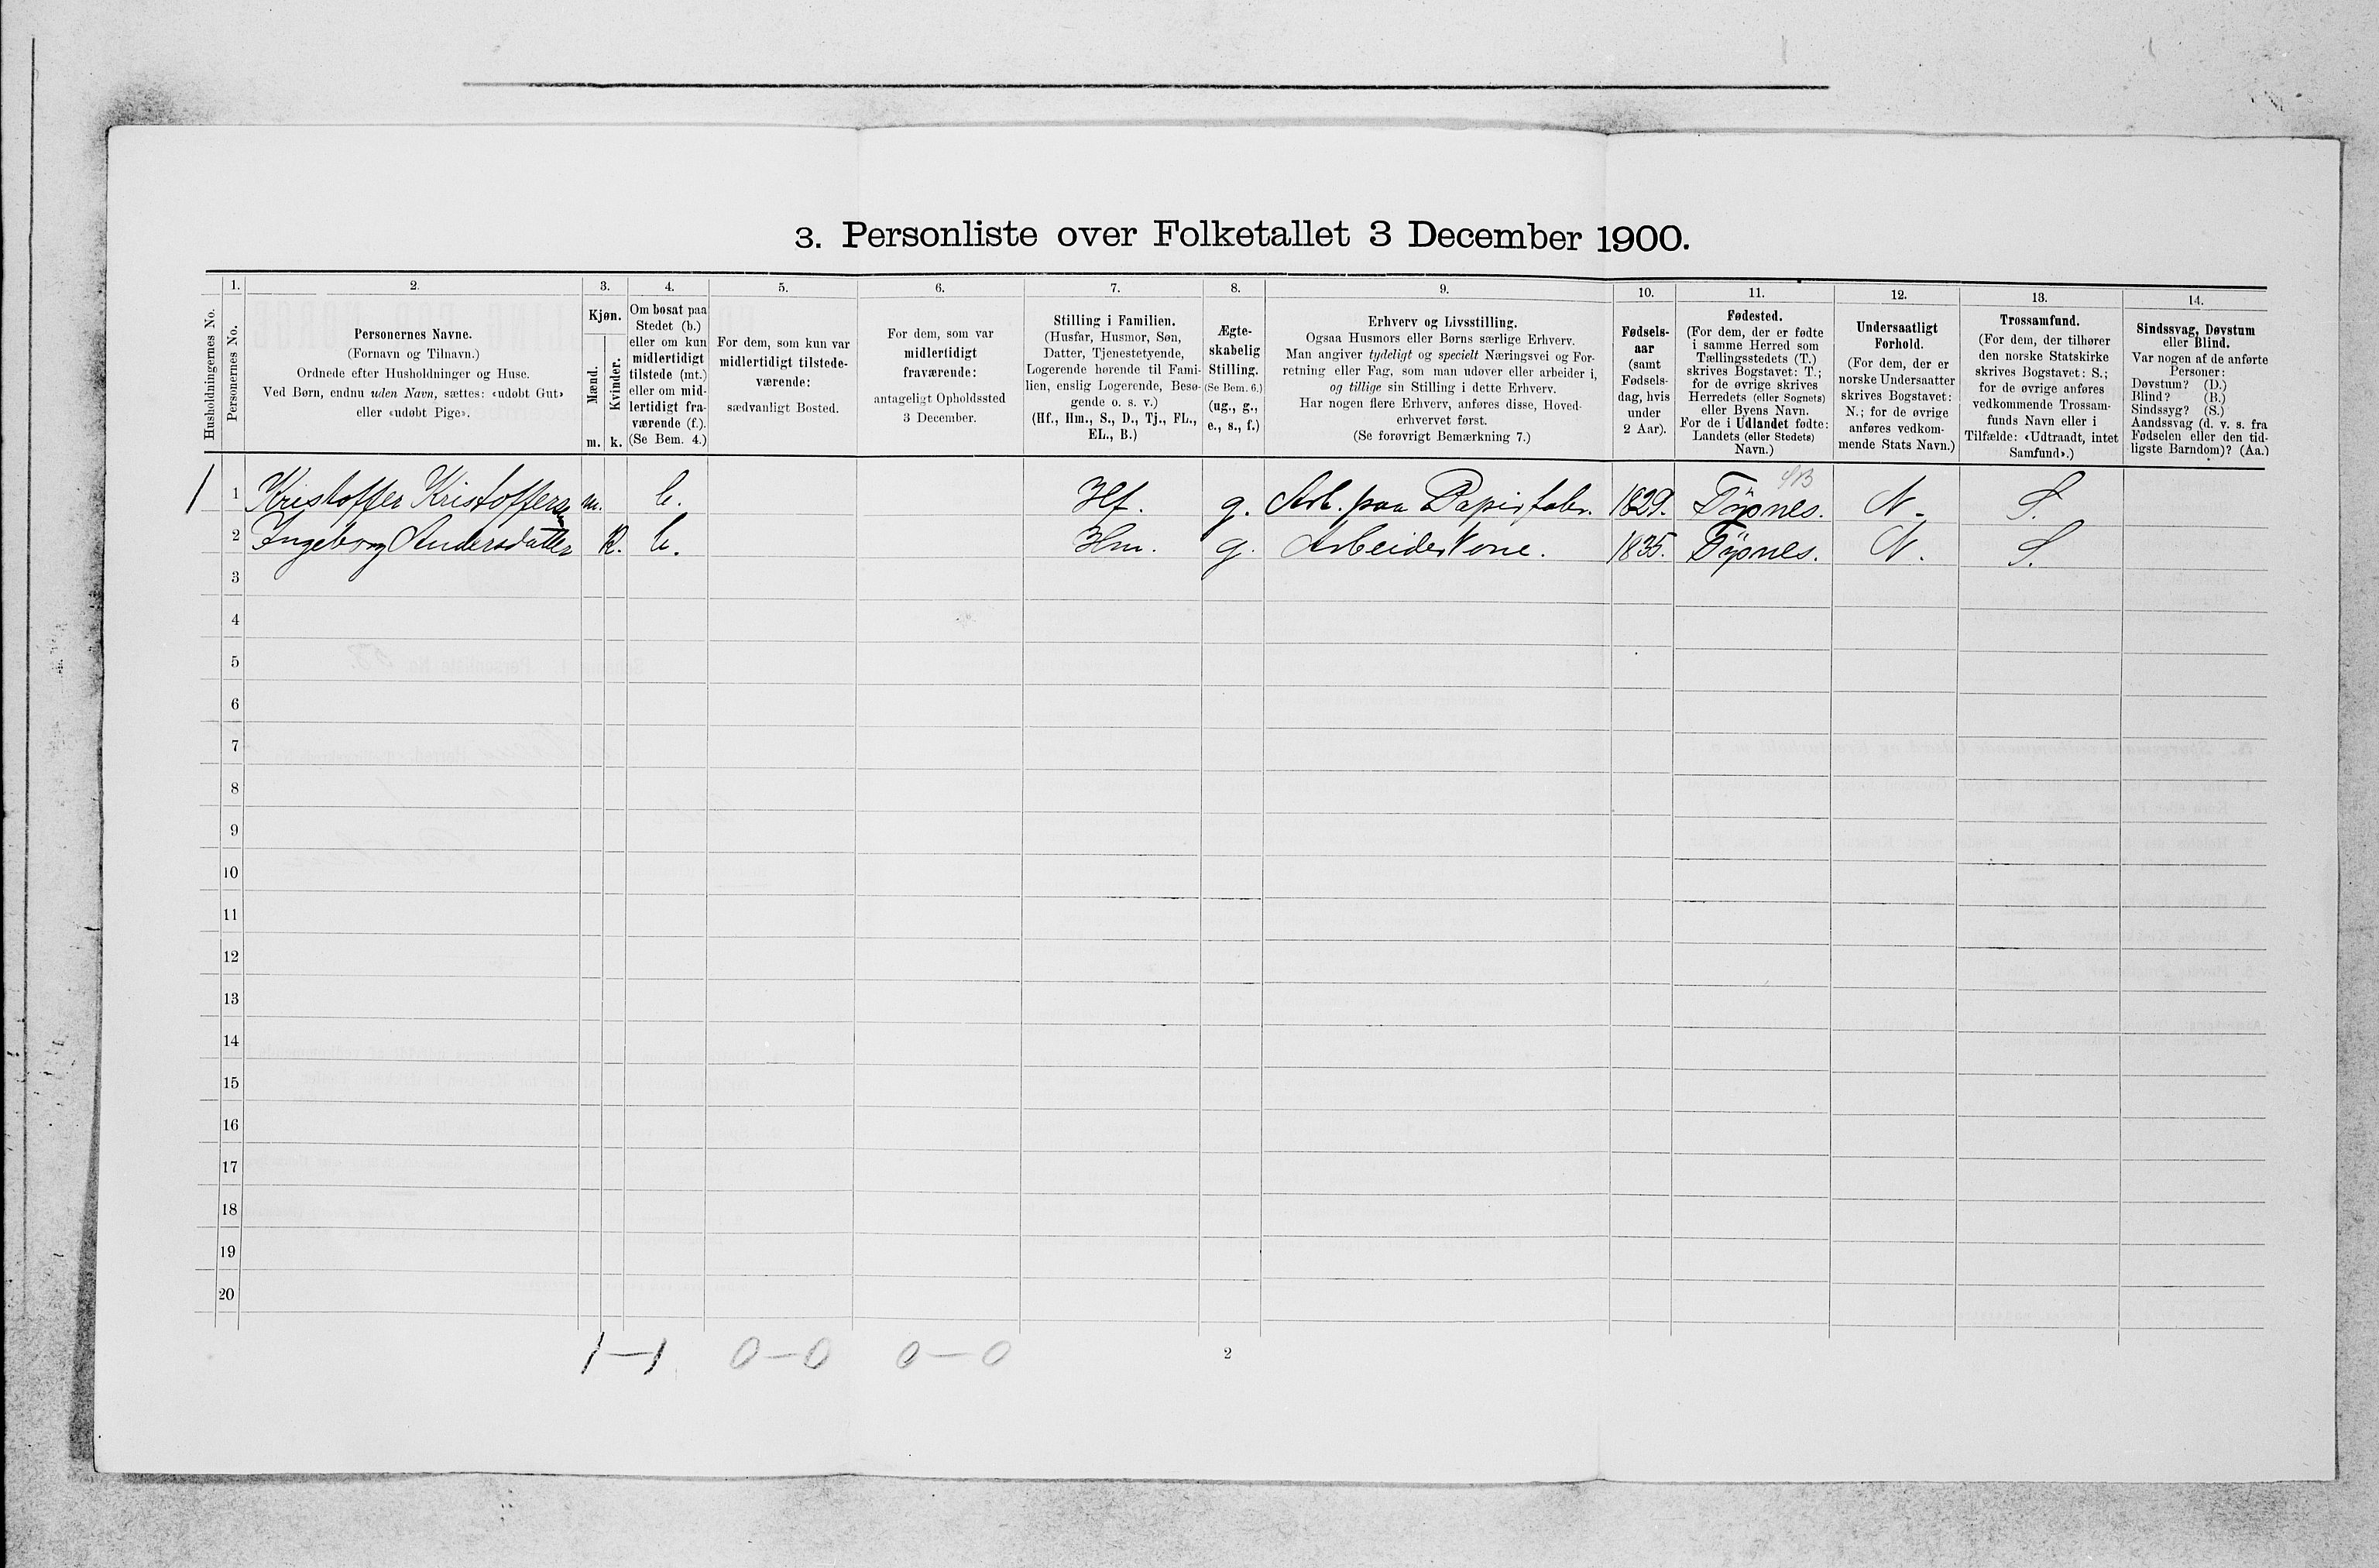 3. Personliste over Folketallet 3 December 1900.
1. 2. 3. 4. 5. 6. 7. 8. 9. 10. 11. 12. 13. 14.
Husholdningernes No.
Personernes No.
Personernes Navne.
(Fornavn og Tilnavn.)
Ordnede efter Husholdninger og Huse.
Ved Børn, endnu uden Navn, sættes: «udøbt Gut»
eller «udøbt Pige».
Kjøn.
Mænd.
Kvinder.
m. k.
Om bosat paa
Stedet (b.)
eller om kun
midlertidigt
tilstede (mt.)
eller om mid-
lertidigt fra-
værende (f.).
(Se Bem. 4.)
For dem, som kun var
midlertidigt tilstede-
værende:
sædvanligt Bosted.
For dem, som var
midlertidigt
fraværende:
antageligt Opholdssted
3 December.
Stilling i Familien.
(Husfar, Husmor, Søn,
Datter, Tjenestetyende,
Logerende hørende til Fami-
lien, enslig Logerende, Besø-
gende o. s. v.)
(Hf., Hm., S., D., Tj., FL.,
EL., B.)
Ægte-
skabelig
Stilling.
(Se Bem. 6.)
(ug., g.,
e., s., f.)
Erhverv og Livsstilling.
Ogsaa Husmors eller Børns særlige Erhverv.
Man angiver tydeligt og specielt Næringsvei og For-
retning eller Fag, som man udøver eller arbeider i,
og tillige sin Stilling i dette Erhverv.
Har nogen flere Erhverv, anføres disse, Hoved-
erhvervet først.
(Se forøvrigt Bemærkning 7.)
Fødsels-
aar
(samt
Fødsels-
dag, hvis
under
2 Aar).
Fødested.
(For dem, der er fødte
i samme Herred som
Tællingsstedets (T.)
skrives Bogstavet: T.;
for de øvrige skrives
Herredets (eller Sognets)
eller Byens Navn.
For de i Udlandet fødte:
Landets (eller Stedets)
Navn.)
Undersaatligt
Forhold.
(For dem, der er
norske Undersaatter
skrives Bogstavet:
N.; for de øvrige
anføres vedkom-
mende Stats Navn.)
Trossamfund.
(For dem, der tilhører
den norske Statskirke
skrives Bogstavet: S.;
for de øvrige anføres
vedkommende Trossam-
funds Navn eller i
Tilfælde: «Udtraadt, intet
Samfund».)
Sindssvag, Døvstum
eller Blind.
Var nogen af de anførte
Personer:
Døvstum? (D.)
Blind? (B.)
Sindssyg? (S.)
Aandssvag (d. v. s. fra
Fødselen eller den tid-
ligste Barndom)? (Aa.)
1 1 Kristoffer Kristoffersen m. b. Hf. g. Arb. paa Papirfabr. 1829. N. S.
2 Ingeborg Andersdatter k. b. Hm. g. Arbeider Kone. 1835. N. S.
3
4
5
6
7
8
9
10
11
12
13
14
15
16
17
18
19
20
1–1 0–0 0–0
2